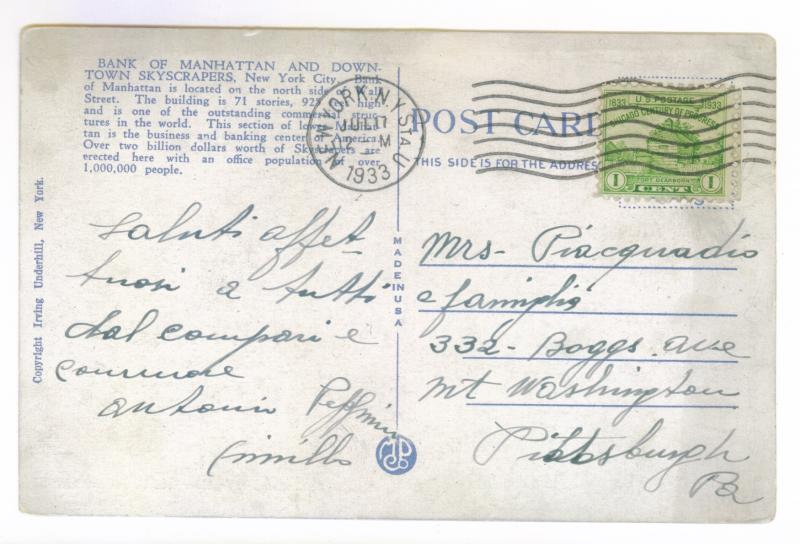 BANK OF MANHATTAN AND DOWN-
TOWN SKYSCRAPERS, New York City. Bank
of Manhattan is located on the north side of Wall
Street. The building is 71 stories, 925 high
and is one of the outstanding commercial struc-
tures in the world. This section of lower Manhat-
tan is the business and banking center of America.
Over two billion dollars worth of Skyscrapers are
erected here with an office population of over
1,000,000 people.
NEW YORK, N.Y. STA. U
JUL 17
M
1933
POST CARD
THIS SIDE IS FOR THE ADDRESS
U.S. POSTAGE
1833 1933
CHICAGO CENTURY OF PROGRESS
FORT DEARBORN
1 CENT 1
Copyright Irving Underhill, New York.
MADE IN USA
Saluti affet
tuosi a tutti
dal compari e
commare
Antonio Peppino
Mrs- Piacquadio
e famiglia
332- Boggs. Ave
Mt Washington
Pittsburgh
Pa